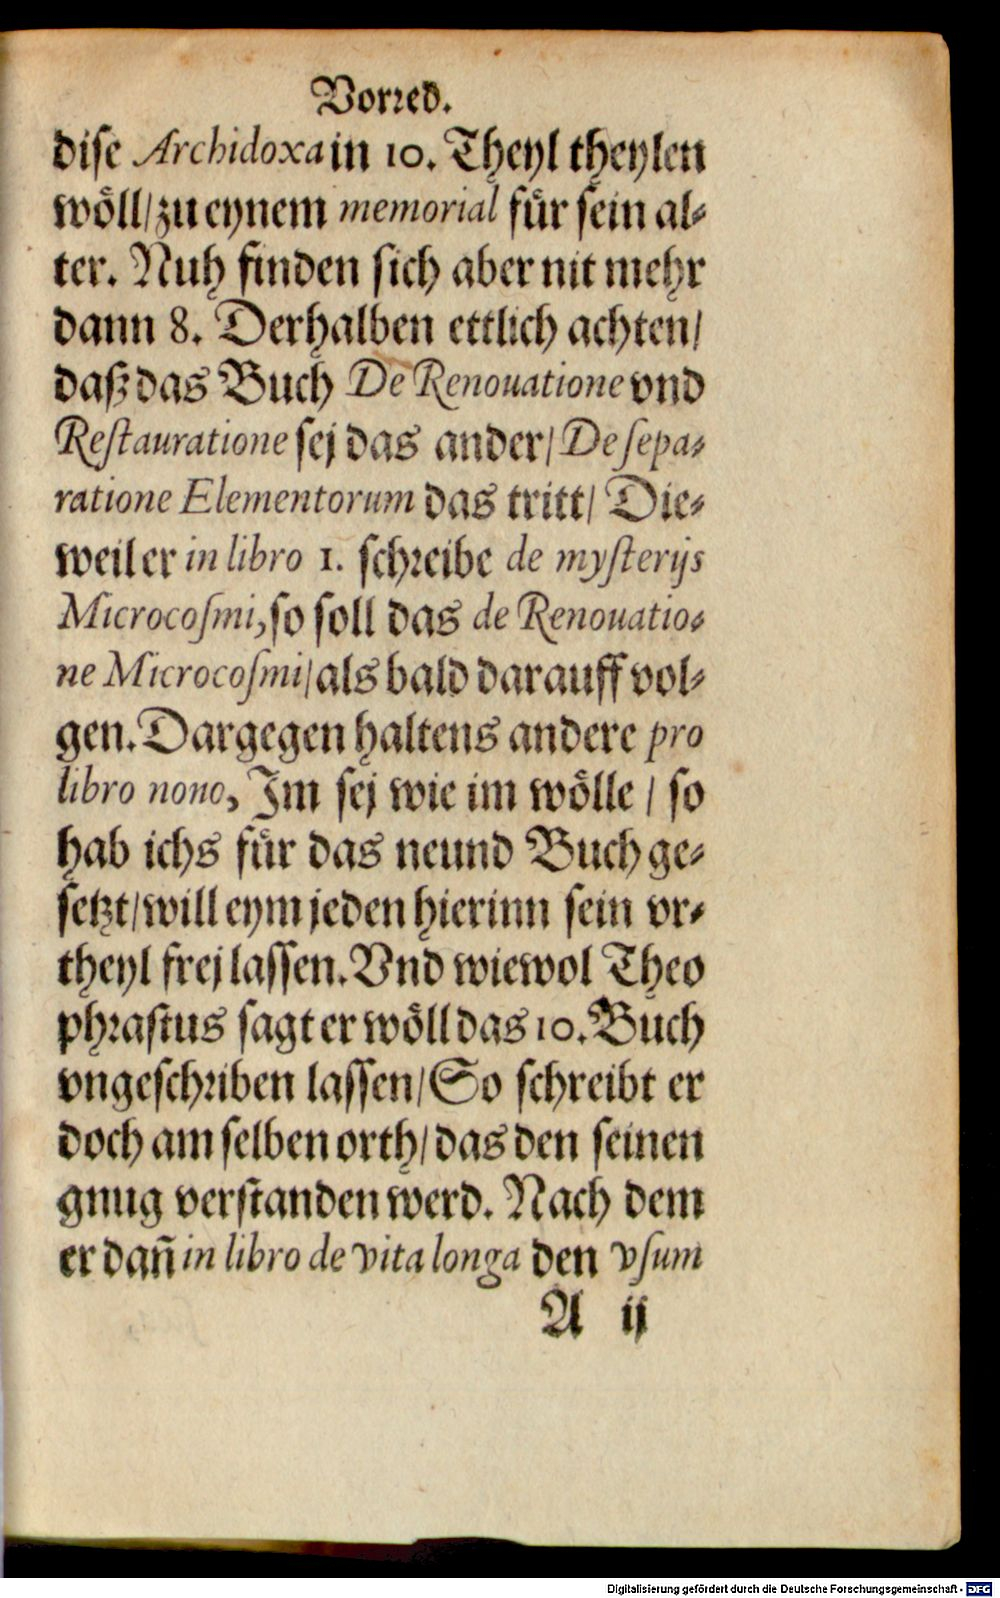 Vorred.
dise Archidoxa in 10. Theyl theylen
wöll/ zu eynem memorial für sein al-
ter. Nuh finden sich aber nit mehr
dann 8. Derhalben ettlich achten/
daß das Buch De Renouatione vnd
Restauratione sej das ander/ De sepa-
ratione Elementorum das tritt/ Die-
weil er in libro 1. schreibe de mysterijs
Microcosmi, so soll das de Renouatio-
ne Microcosmi/ als bald darauff vol-
gen. Dargegen haltens andere pro
libro nono, Im sej wie im wölle / so
hab ichs für das neund Buch ge-
setzt/ will eym jeden hierinn sein vr-
theyl frej lassen. Vnd wiewol Theo
phrastus sagt er wöll das 10. Buch
vngeschriben lassen/ So schreibt er
doch am selben orth/ das den seinen
gnug verstanden werd. Nach dem
er dañ in libro de vita longa den vsum
A ij
Digitalisierung gefördert durch die Deutsche Forschungsgemeinschaft - DFG